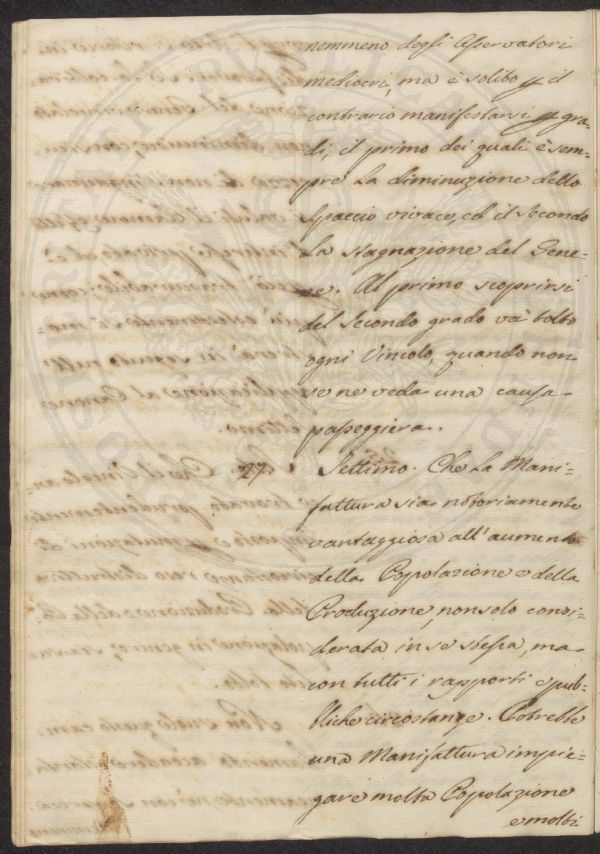 nemmeno degli Osservatori
mediocri, ma è solito il
contrario manifestarsi gra=
di, il primo dei quali è sem=
pre la diminuzione dello
Spaccio vivace, ed il Secondo
la stagnazione del Gene=
re. Al primo scoprirsi
del Secondo grado và tolto
ogni Vincolo, quando non
se ne veda una causa
passeggiera.
27. Settimo. Che la Mani=
fattura sia notoriamente
vantaggiosa all'aumento
della Popolazione e della
Produzione, non solo consi=
derata in se stessa, ma
con tutti i rapporti e pub=
bliche circostanze. Potrebbe
una Manifattura impie=
gare molta Popolazione
e molti